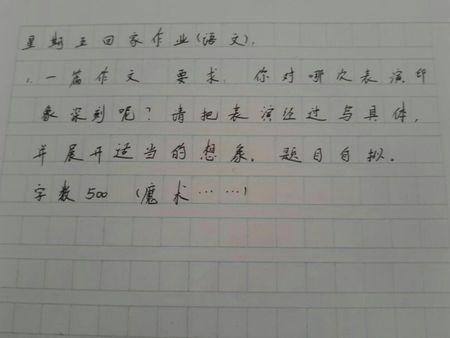 星期五回家作业(语文).
1. 一篇作文 要求. 你对哪次表演印
象深刻呢?请把表演经过写具体,
并展开适当的想象。题目自拟。
字数500 (魔术……)